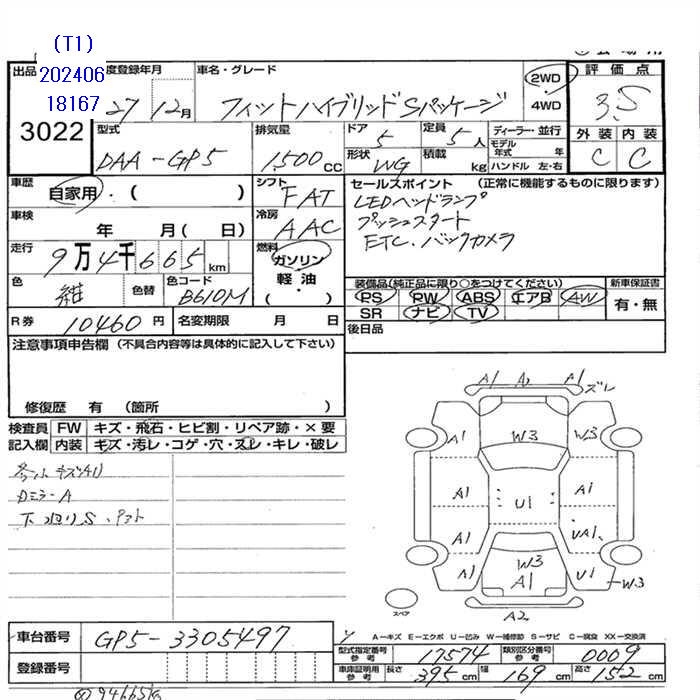 (T1)
202406
18167
出品
3022
度登録年月
27 12月
車名・グレード
フィットハイブリッドSパッケージ
2WD
4WD
評価点
3.5
外装 内装
C C
型式
DAA-GP5
排気量
1500 CC
ドア
5
定員
5人
形状
WG
積載
kg
ディーラー・並行
モデル年式 年
ハンドル 左・右
車歴
自家用・( )
シフト
FAT
セールスポイント (正常に機能するものに限ります)
LEDヘッドランプ
プッシュスタート
ETC.バックカメラ
車検
年 月( 日)
冷房
AAC
走行
9万4千665km
燃料
ガソリン
軽油
( ・ )
色
紺
色替
色コード
B610M
装備品(純正品に限り○をつけてください)
PS PW ABS エアB AW
SR ナビ TV
新車保証書
有・無
R券 10460円
名変期限 月 日
後日品
注意事項申告欄 (不具合内容等は具体的に記入して下さい)
修復歴 有 (箇所 )
検査員 FW キズ・飛石・ヒビ割・リペア跡・×要
記入欄 内装 キズ・汚レ・コゲ・穴・スレ・キレ・破レ
A1 A2 A1 ズレ
A1 W3 W3
A1 U1 A1
A1 UA1
A1 W3 A1 U1 W3
スペア
A2
車台番号 GP5-3305497
登録番号
A-キズ E-エクボ U-凹み W-補修跡 S-サビ C-腐食 XX-交換済
型式指定番号 参考 17574
類別区分番号 参考 0009
車庫証明用 参考 長さ 395cm 幅 169cm 高さ 152cm